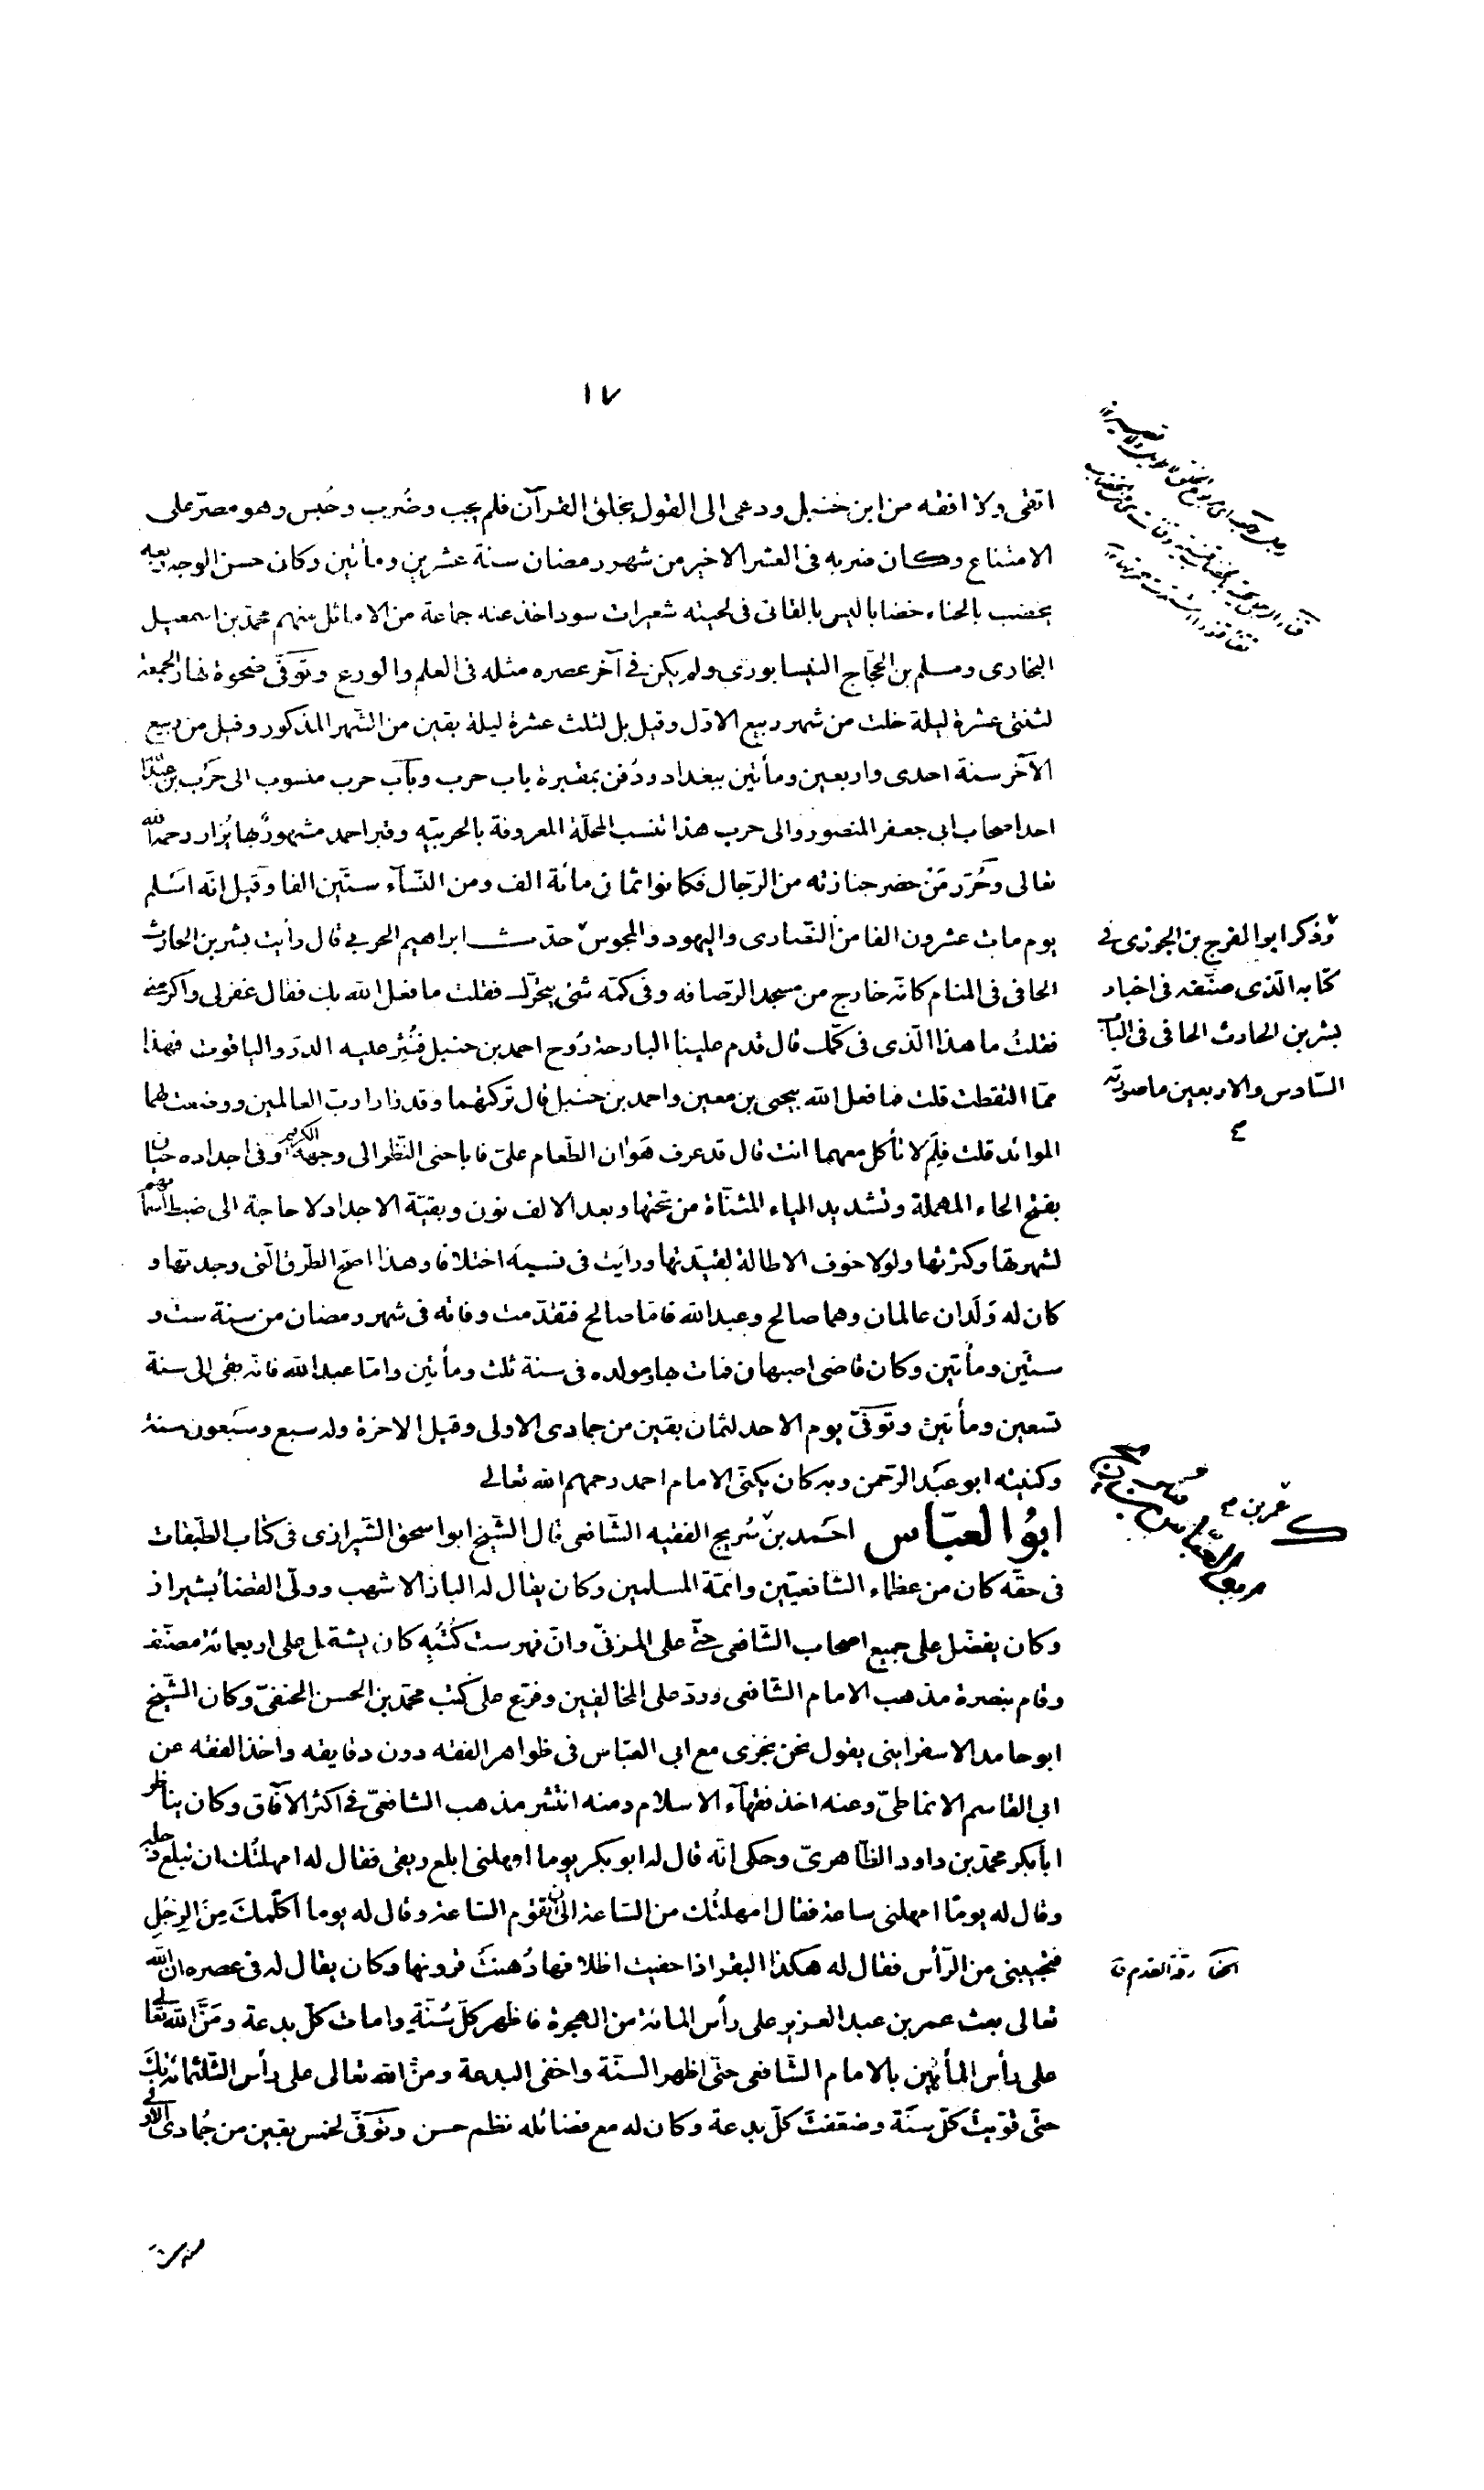 ١٧
اتقى ولا افقه من ابن حنبل ودعى الى القول بخلق القرآن فلم يجب وضُرب وحُبس وهو مصرّ على
الامتناع وكان ضربه فى العشر الاخير من شهر رمضان سنة عشرين ومأتين وكان حسن الوجه ربعه
يخضب بالحناء خضابا ليس بالقانى فى لحيته شعيرات سود اخذ عنه جماعة من الاماثل منهم محمد بن اسمعيل
البخارى ومسلم بن الحجّاج النيسابورى ولم يكن فى آخر عصره مثله فى العلم والورع وتوفّى ضحوة نهار الجمعة
لثنتى عشرة ليلة خلت من شهر ربيع الاوّل وقيل بل لثلث عشرة ليلة بقين من الشهر المذكور وقيل من ربيع
الآخر سنة احدى واربعين ومأتين ببغداد ودُفن بمقبرة باب حرب وبآب حرب منسوب الى حَرب بن عبد الله
احد اصحاب ابى جعفر المنصور والى حرب هذا تنسب المحلّة المعروفة بالحربيّه وقبر احمد مشهور بها يُزار رحمه الله
تعالى وحُزر مَنْ حضر جنازته من الرّجال فكانوا ثمان مائة الف ومن النّسآء ستّين الفا وقيل انّه اسَلم
يوم مات عشرون الفا من النّصارى واليهود والمجوس حدّث ابراهيم الحربى قال رأيت بشر بن الحارث
الحافى فى المنام كانّه خارج من مسجد الرّصافه وفى كمّه شئ يتحرّك فقلت ما فعل الله بك فقال غفر لى واكرمنى
فقلتُ ما هذا الّذى فى كمّك قال قدم علينا البارحة رُوح احمد بن حنبل فنُثِر عليه الدرّ والياقوت فهذا
ممّا التقطت قلت فما فعل الله بيحيى بن معين واحمد بن حنبل قال تركتهما وقد زارا ربّ العالمين ووضعت لهما
الموائد قلت فلِمَ لا تأكل معهما انت قال قد عرف هَوَان الطّعام علىّ فاباحنى النّظر الى وجهه الكريم وفى اجداده حيّان
بفتح الحاء المهملة وتشديد الياء المثنّاة من تحتها وبعد الالف نون وبقيّة الاجداد لا حاجة الى ضبط اسمائهم
لشهرتها وكثرتها ولولا خوف الاطالة لقيّدتها ورايَت فى نسبه اختلافا وهذا اصحّ الطّرق الّتى وجدتها و
كان له وَلَدان عالمان وهما صالح وعبد الله فامّا صالح فتقدّمت وفاته فى شهر رمضان من سنة ستّ و
ستّين ومأتين وكان قاضى اصبهان فمات بها ومولده فى سنة ثلث ومأتين وامّا عبد الله فانّه بقى الى سنة
تسعين ومأتين وتوَفّى يوم الاحد لثمان بقين من جمادى الاولى وقيل الاخرة وله سبع وسَبعون سنة
وكنيته ابو عَبد الرّحمن وبه كان يكنّى الامام احمد رحمهم الله تعالى
ابوُ العبّاس احَمد بن سُريج الفقيه الشّافعى قال الشّيخ ابو اسحق الشّيرازى فى كتاب الطّبقات
فى حقّه كان من عظماء الشّافعيّين وائمّة المسلمين وكان يقال له الباز الاشهب وولّى القضأ بشيراز
وكان يفضّل على جميع اصحاب الشّافعى حتّى على المزنىّ وانّ فهرست كُتُبِه كان يشتمل على اربعمائة مصنّف
وقام بنصرة مذهب الامام الشّافعى وردّ على المخالفين وفرّع على كتب محمّد بن الحسن الحنفىّ وكان الشّيخ
ابو حامد الاسفراينى يقول نحن نجرى مع ابى العبّاس فى ظواهر الفقه دون دقايقه واخذ الفقه عن
ابى القاسم الانماطىّ وعنه اخذ فقهآء الاسلام ومنه انتشر مذهب الشافعىّ فى اكثر الآفاق وكان يناظر
ابا بكر محمّد بن داود الظّاهرىّ وحكى انّه قال له ابو بكر يوما امهلنى ابلع ريقى فقال له امهلتُك ان تبلع دجله
وقال له يومًا امهلنى ساعة فقال امهلتُك من السّاعة الى ان تقوم السّاعة وقال له يوما اكلّمكَ مِنَ الرِجلِ
فتجيبنى من الرّأس فقال له هكذا البقر اذا حفيت اظلافها دُهنتْ قرونها وكان يقال له فى عصره ان الله
تعالى بعث عمر بن عبد العزيز على رأس المائة من الهجرة فاظهر كلّ سُنّةٍ وامات كلّ بدعة ومَنَّ الله تعالى
على رأس المأتين بالامام الشّافعى حتّى اظهر السنّة واخفى البدعة ومنّ الله تعالى على رأس الثلثمائة بكَ
حتّى قوّيتَ كلّ سنّة وضعّفتَ كلّ بدعة وكان له مع فضائله نظم حسن وتوَفّى لخمس بقين من جُمادى الاولى
وذكر ابو الفرج بن الجوزى فى
كتابه الّذى صنّفه فى اخبار
بشر بن الحارث الحافى فى الباب
السّادس والاربعين ما صورته
عمر بن
الحفا رقة القدم